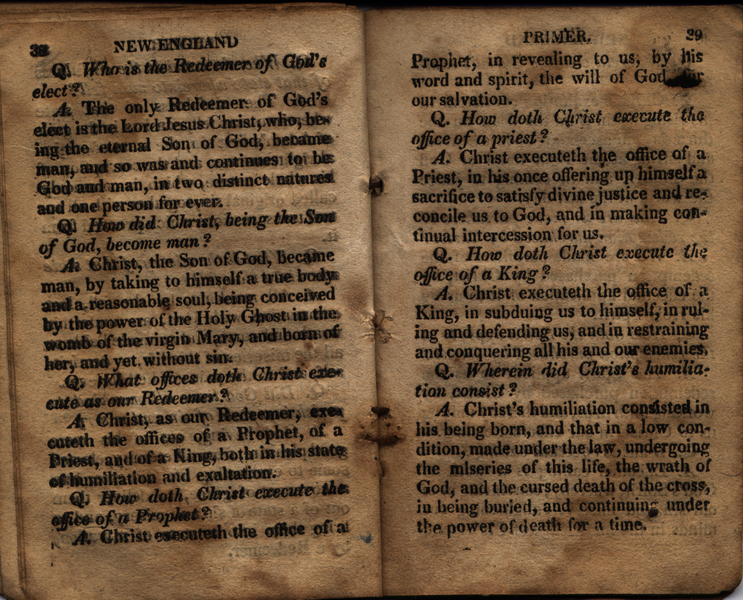 38 NEW ENGLAND
Q. Who is the Redeemer of God's
elect?
A. The only Redeemer of God's
elect is the Lord Jesus Christ, who, be-
ing the eternal Son of God, became
man, and so was and continues to be
God and man, in two distinct natures
and one person for ever.
Q. How did Christ, being the Son
of God, become man?
A. Christ, the Son of God, became
man, by taking to himself a true body
and a reasonable soul, being conceived
by the power of the Holy Ghost in the
womb of the virgin Mary, and born of
her, and yet without sin.
Q. What offices doth Christ exe-
cute as our Redeemer?
A. Christ, as our Redeemer, exe-
cuteth the offices of a Prophet, of a
Priest, and of a King, both in his state
of humiliation and exaltation.
Q. How doth Christ execute the
office of a Prophet?
A. Christ executeth the office of a
PRIMER. 39
Prophet, in revealing to us, by his
word and spirit, the will of God for
our salvation.
Q. How doth Christ execute the
office of a priest?
A. Christ executeth the office of a
Priest, in his once offering up himself a
sacrifice to satisfy divine justice and re-
concile us to God, and in making con-
tinual intercession for us.
Q. How doth Christ execute the
office of a King?
A. Christ executeth the office of a
King, in subduing us to himself, in rul-
ing and defending us, and in restraining
and conquering all his and our enemies.
Q. Wherein did Christ's humilia-
tion consist?
A. Christ's humiliation consisted in
his being born, and that in a low con-
dition, made under the law, undergoing
the miseries of this life, the wrath of
God, and the cursed death of the cross,
in being buried, and continuing under
the power of death for a time.